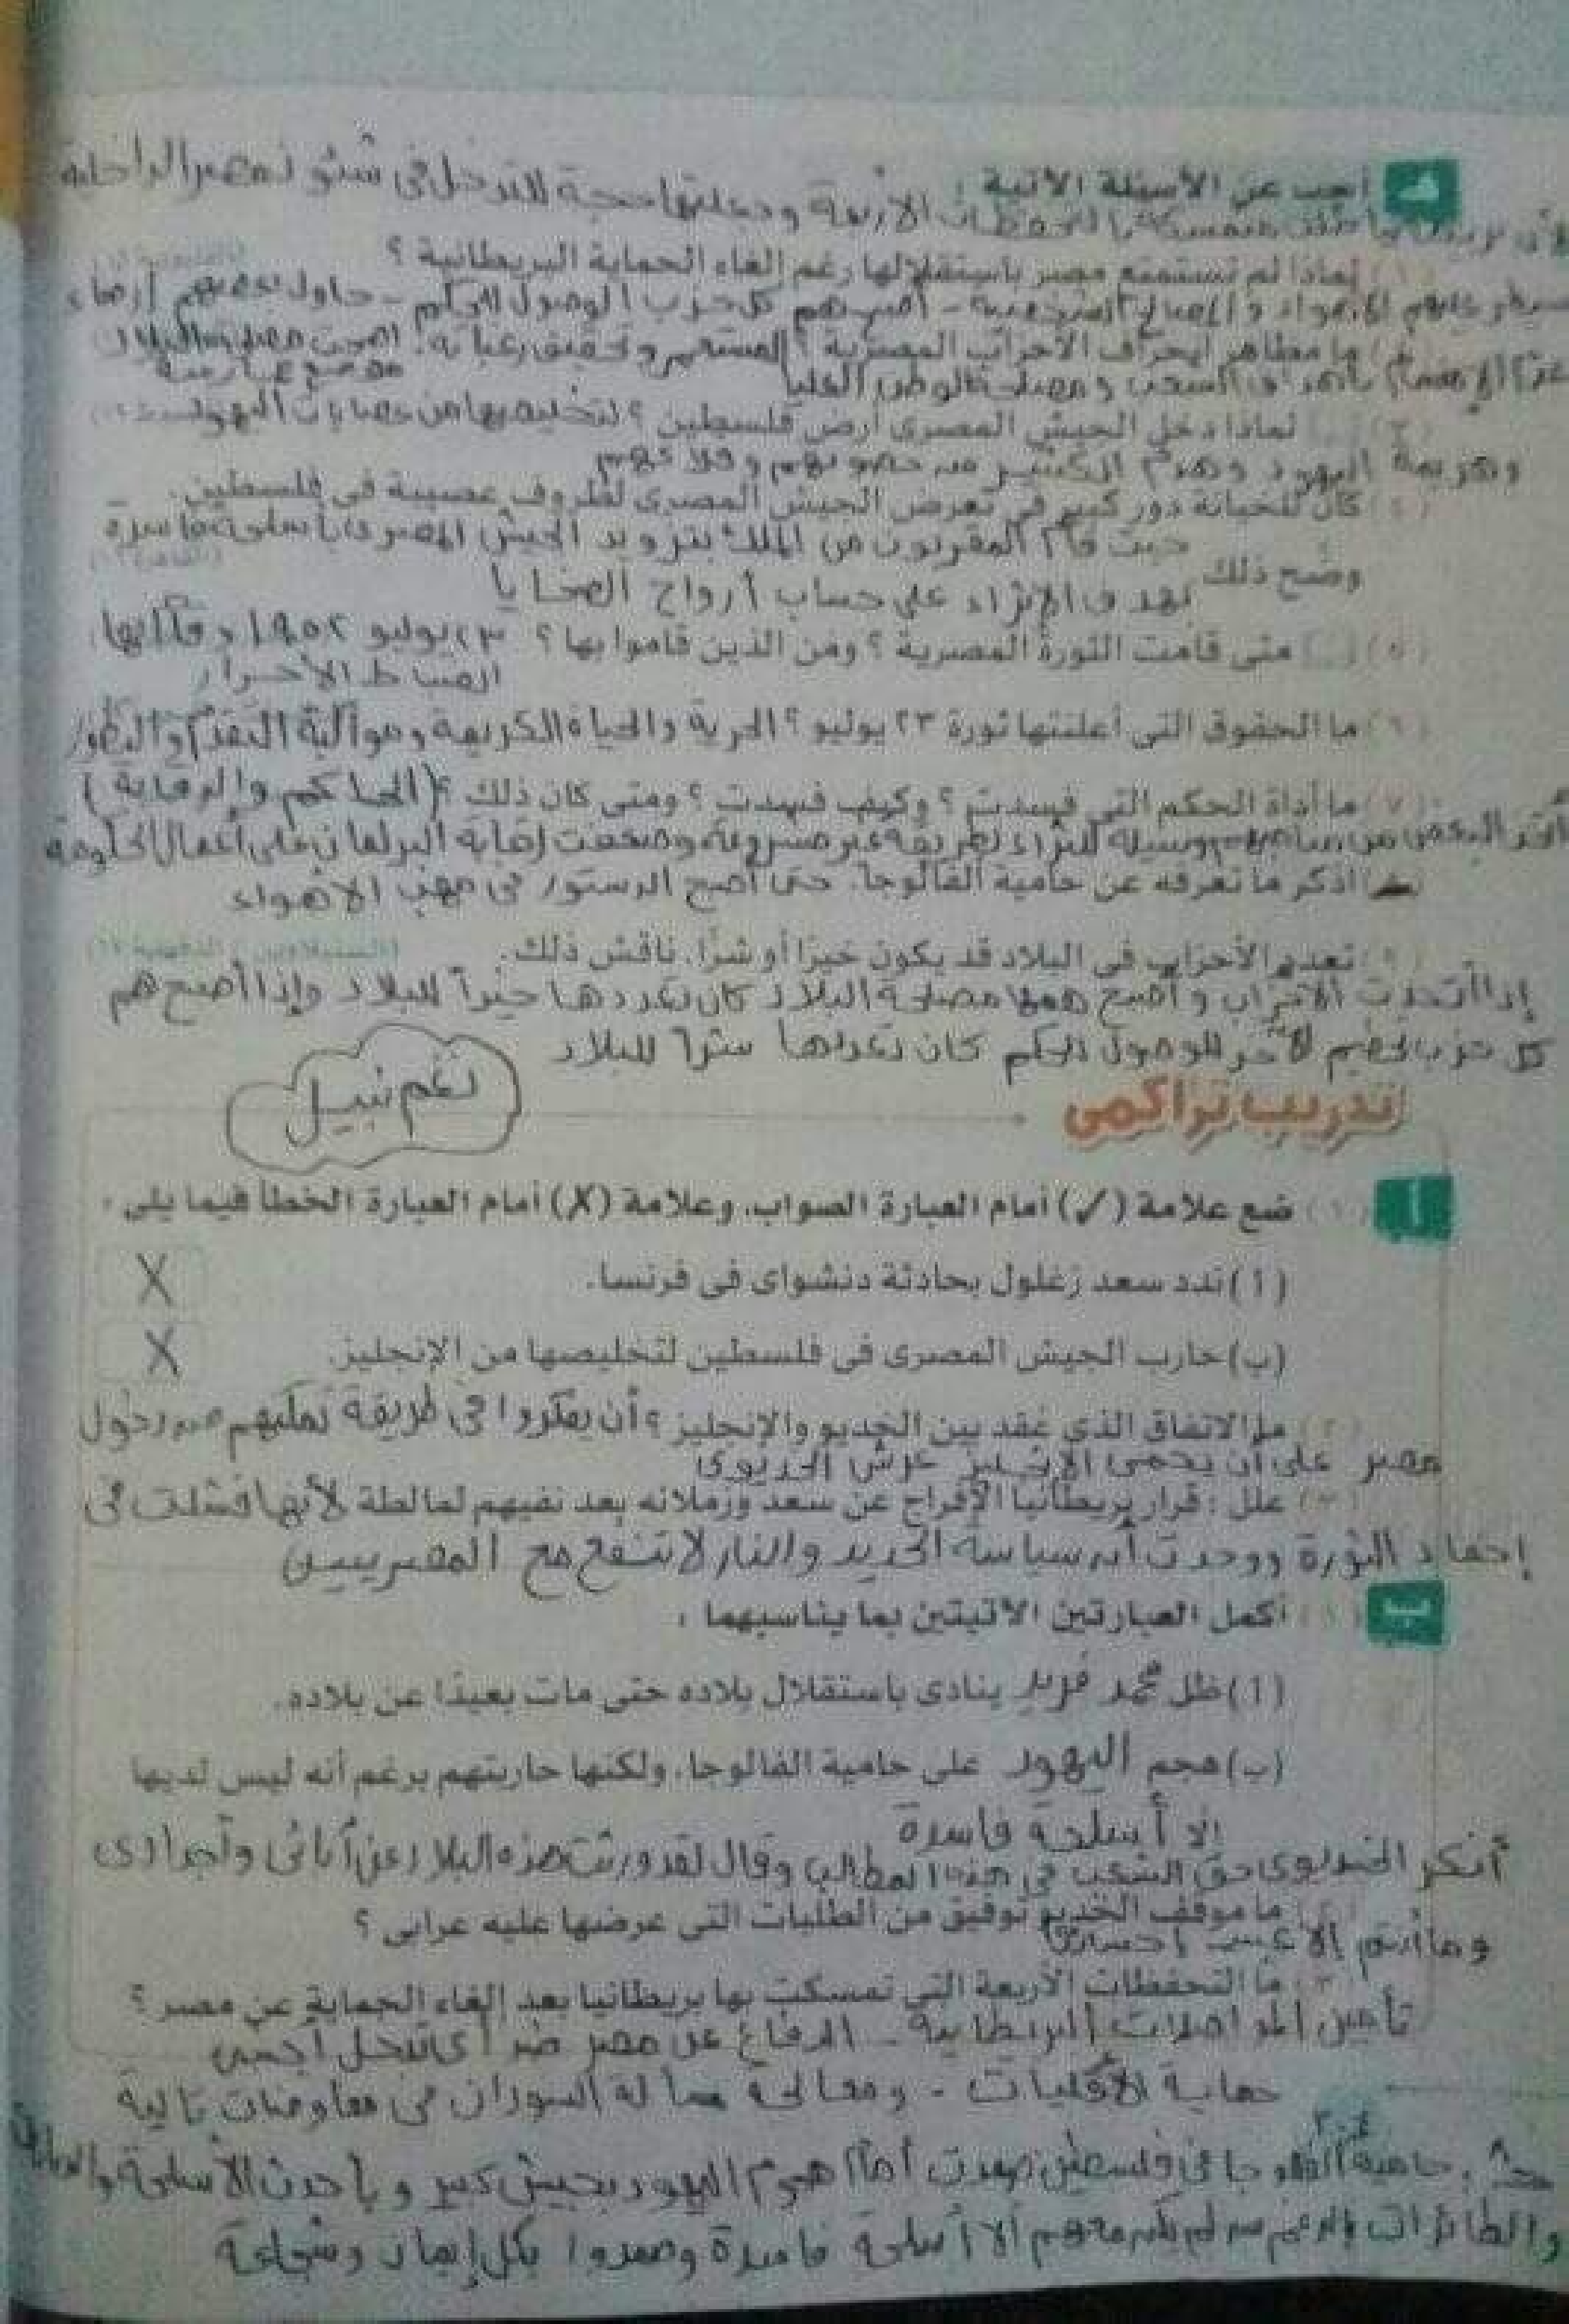 أجب عن الأسئلة الآتية :
لأن بريطانيا ظلت متمسكة بالتحفظات الأربعة وجعلتها حجة للتدخل فى شئون مصر الداخلية
(١) لماذا لم تستمتع مصر باستقلالها رغم إلغاء الحماية البريطانية ؟
سيطر عليهم الأهواء والمصالح الشخصية - أصبح هم كل حزب الوصول للحكم - حاول بعضهم إرضاء
(٢) ما مظاهر انحراف الأحزاب المصرية ؟ المستعمر وتحقيق رغباته. أصبحت مصلحة البلاد
عدم الاهتمام بأهداف الشعب ومصلحة الوطن العليا
(٣) لماذا دخل الجيش المصرى أرض فلسطين ؟ لتخليصها من عصابات اليهود
وهزيمة اليهود وهدم الكثير من حصونهم وقلاعهم
(٤) كان للخيانة دور كبير فى تعرض الجيش المصرى لظروف عصيبة فى فلسطين.
حيث قام المقربون من الملك بتزويد الجيش المصرى بأسلحة فاسدة
وضح ذلك بهدف الإثراء على حساب أرواح الضحايا
(٥) متى قامت الثورة المصرية ؟ ومن الذين قاموا بها ؟ ٢٣ يوليو ١٩٥٢ وقام بها
الضباط الأحرار
(٦) ما الحقوق التى أعلنتها ثورة ٢٣ يوليو ؟ الحرية والحياة الكريمة ومواكبة التقدم والتطور
(٧) ما أداة الحكم التى فسدت ؟ وكيف فسدت ؟ ومتى كان ذلك ؟ (الحاكم والرقابة)
أتخذ البعض من مناصبهم وسيلة للثراء بطريقة غير مشروعة وضعفت رقابة البرلمان على أعمال الحكومة
اذكر ما تعرفه عن حامية الفالوجا. حتى أصبح الدستور فى مهب الأهواء
(٩) تعدد الأحزاب فى البلاد قد يكون خيرًا أو شرًا. ناقش ذلك.
إذا أتحدت الأحزاب وأصبح همها مصلحة البلاد كان تعددها خيراً للبلاد وإذا أصبح هم
كل حزب تحطيم الآخر للوصول للحكم كان تعددها شراً للبلاد
نغم نبيل
تدريب تراكمى
أ (١) ضع علامة (✓) أمام العبارة الصواب، وعلامة (X) أمام العبارة الخطأ فيما يلى :
(أ) ندد سعد زغلول بحادثة دنشواى فى فرنسا. X
(ب) حارب الجيش المصرى فى فلسطين لتخليصها من الإنجليز. X
(٢) ما الاتفاق الذى عقد بين الخديو والإنجليز ؟ أن يفكروا فى طريقة تمكنهم من دخول
مصر على أن يحمى الإنجليز عرش الخديوى
(٣) علل : قرار بريطانيا الإفراج عن سعد وزملائه بعد نفيهم لمالطة لأنها فشلت فى
إخماد الثورة ووجدت أن سياسة الحديد والنار لا تنفع مع المصريين
ب (١) أكمل العبارتين الآتيتين بما يناسبهما :
(أ) ظل محمد فريد ينادى باستقلال بلاده حتى مات بعيدًا عن بلاده.
(ب) هجم اليهود على حامية الفالوجا، ولكنها حاربتهم برغم أنه ليس لديها
إلا أسلحة فاسدة
أنكر الخديوى حق الشعب فى هذه المطالب وقال لقد ورثت هذه البلاد عن أبائى وأجدادى
(٢) ما موقف الخديو توفيق من الطلبات التى عرضها عليه عرابى ؟
وما أنتم إلا عبيد إحساننا
(٣) ما التحفظات الأربعة التى تمسكت بها بريطانيا بعد إلغاء الحماية عن مصر ؟
تأمين المواصلات البريطانية - الدفاع عن مصر ضد أى تدخل أجنبى
حماية الأقليات - ومعالجة مسألة السودان فى مفاوضات تالية
حامية الفالوجا فى فلسطين صمدت أمام هجوم اليهود بجيش كبير وبأحدث الأسلحة
والطائرات بالرغم من لم يكن معهم ألا أسلحة فاسدة وصمدوا بكل إيمان وشجاعة